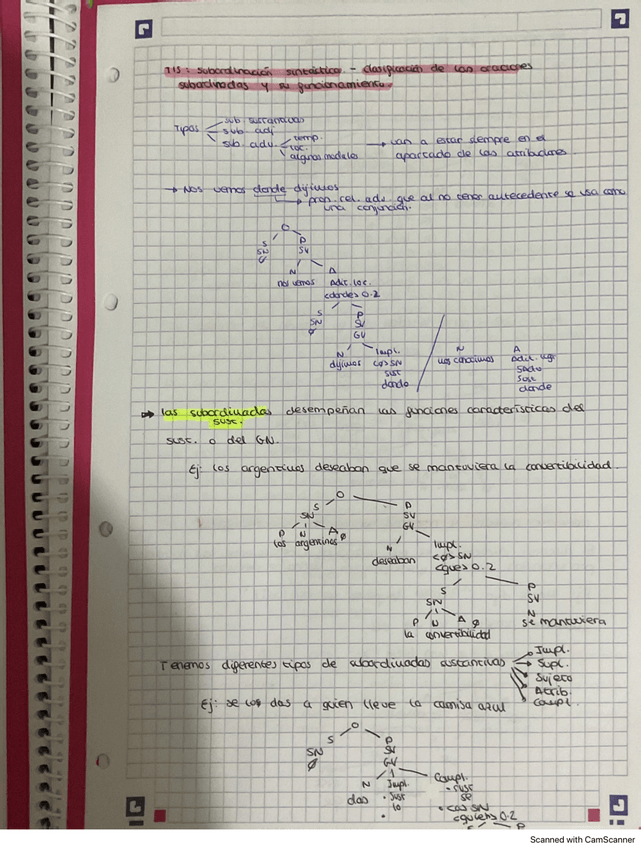 T15: subordinación sintáctica - clasificación de las oraciones
subordinadas y su funcionamiento.
Tipos
sub sustantivas
sub. adj
sub. adv.
temp.
loc.
algunas modales
→ van a estar siempre en el
apartado de las atribuciones
→ Nos vemos donde dijimos
→ pron. rel. adv. que al no tener antecedente se usa como
una conjunción.
O
S P
SN SV
Ø
N A
nos vemos Adit. Loc.
<donde> O.2
S P
SN SV
Ø GV
N Impl. N A
dijimos <a> SN nos conocimos Adit. lugar
sust SAdv
donde Sust
donde
➡ Las subordinadas desempeñan las funciones características del
sust.
sust. o del GN.
Ej: Los argentinos deseaban que se mantuviera la convertibilidad.
O
S P
SN SV
P N A GV
los argentinos Ø
N Impl.
deseaban <a> SN
<que> O.2
S P
SN SV
P N A Ø N
la convertibilidad se mantuviera
Tenemos diferentes tipos de subordinadas sustantivas
Impl.
Supl.
Sujeto
Atrib.
Compl.
Ej: se los das a quien lleve la camisa azul
O
S P
SN SV
Ø GV
N Impl. Compl.
das · Sust · sust
lo se
· <a> SN
<quien> O.2
S P
Scanned with CamScanner